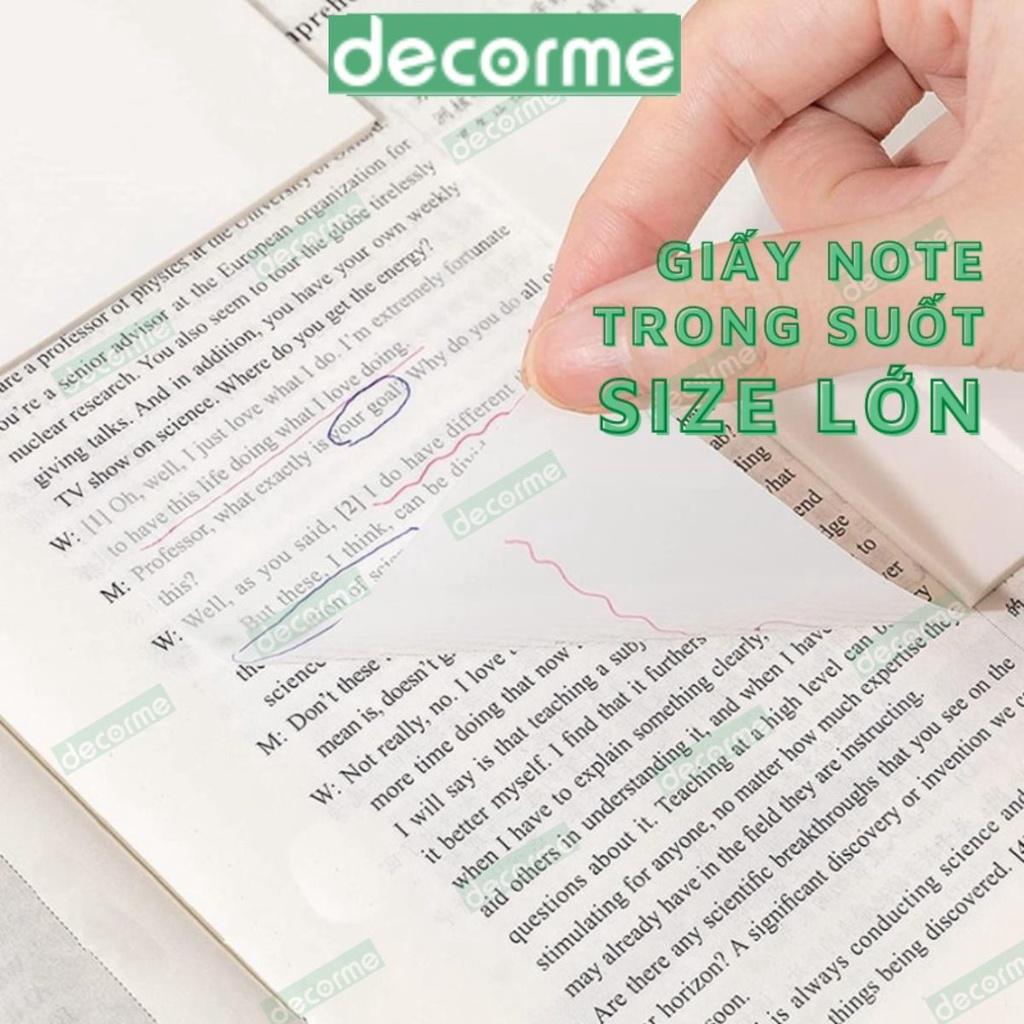 decorme
GIẤY NOTE
TRONG SUỐT
SIZE LỚN
are a professor of physics at the University of
ou're a senior advisor at the European organization for
nuclear research. You also seem to tour the globe tirelessly
giving talks. And in addition, you have your own weekly
TV show on science. Where do you get the energy?
W: [1] Oh, well, I just love what I do. I'm extremely fortunate
to have this life doing what I love doing.
M: Professor, what exactly is your goal? Why do you do all of
this?
W: Well, as you said, [2] I do have different
But these, I think, can be
of
science
M: Don't these
mean is, doesn't
W: Not really, no. I love
more time doing that now
I will say is that teaching a
it better myself. I find that it furthers
when I have to explain something clearly,
aid others in understanding it, and when I have
questions about it. Teaching at a high level can
stimulating for anyone, no matter how much expertise they
may already have in the field they are instructing.
Are there any scientific breakthroughs that you see on the
horizon? A significant discovery or invention we
soon.
is always conducting science and
things being discovered.